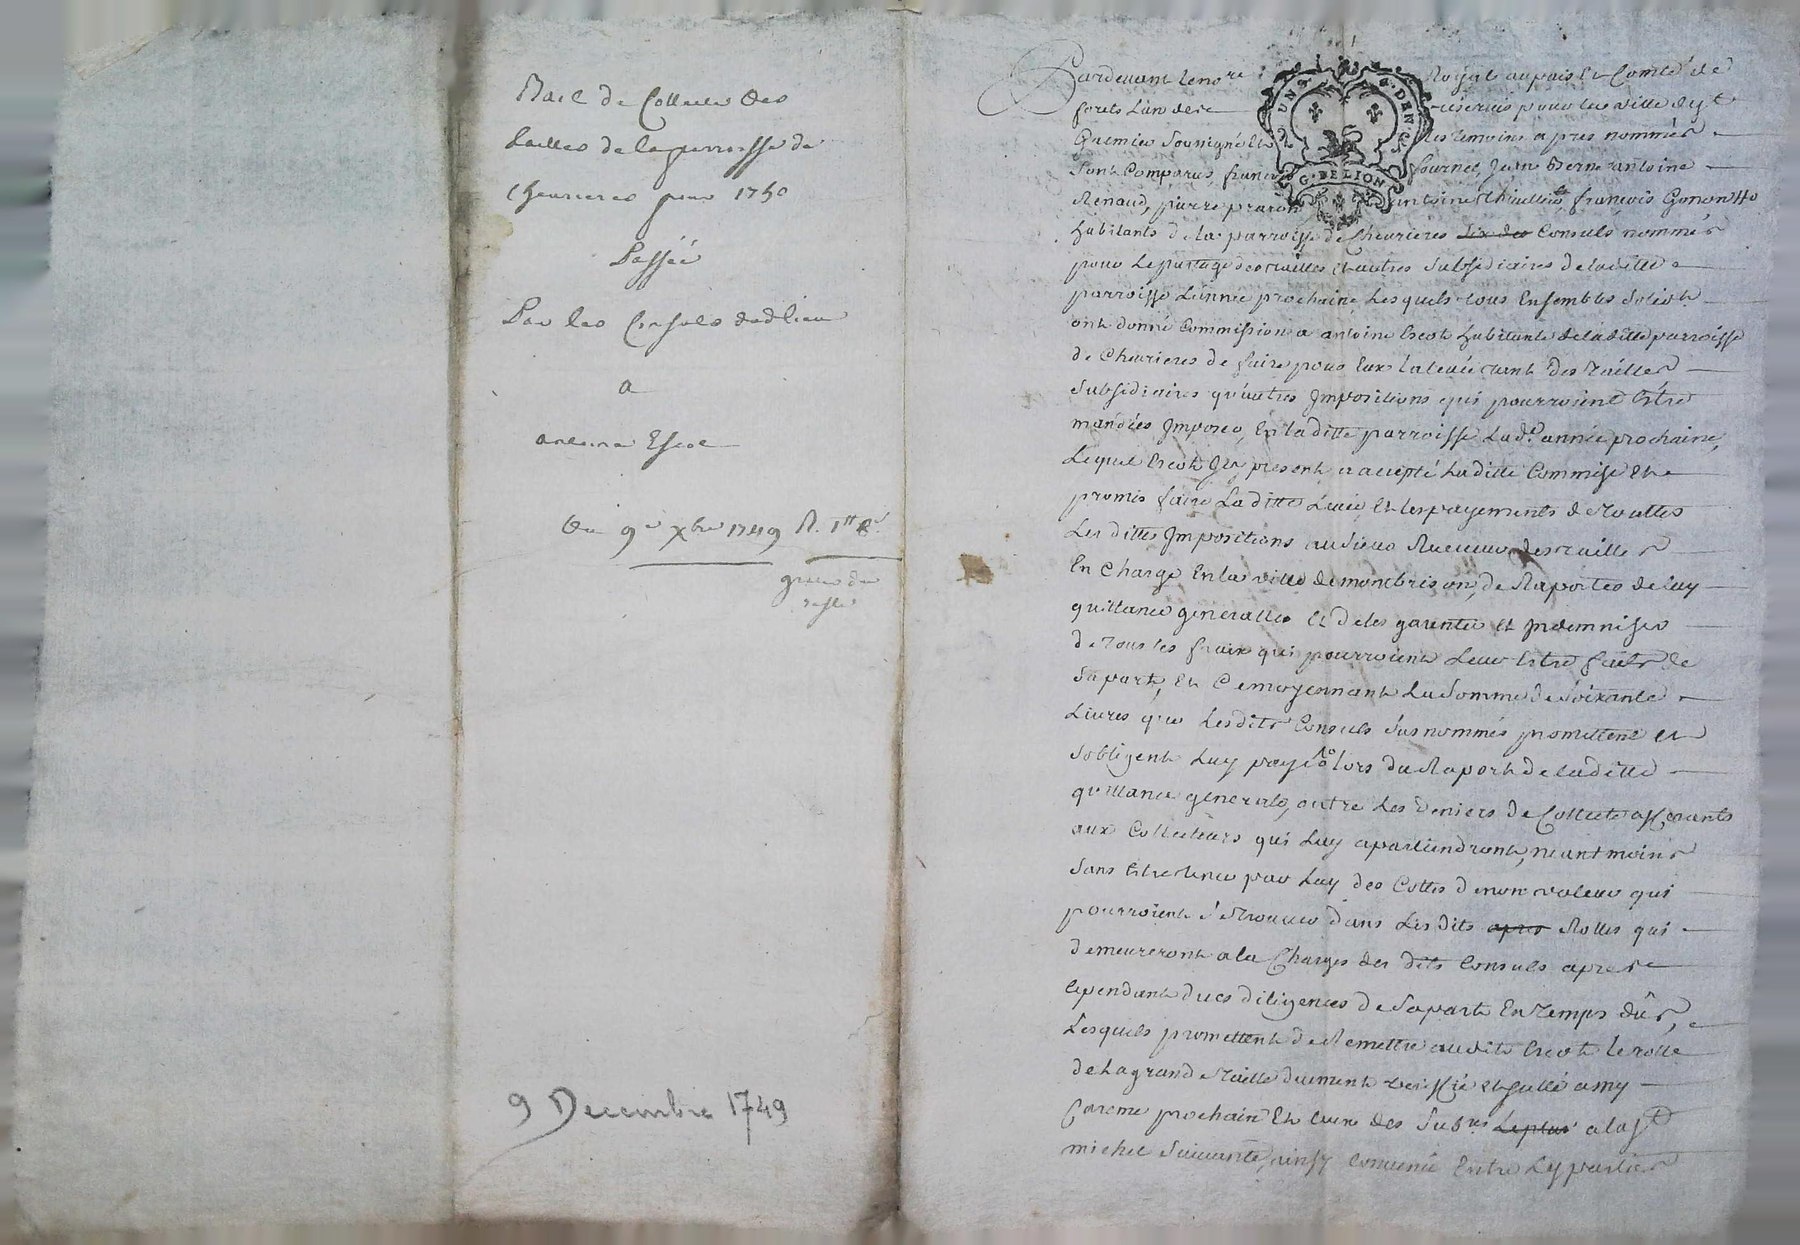 Bail de Collecte des
tailles de la parroisse de
Chevrieres pour 1750
Passée
Par les Consuls dud lieu
a
antoine Escot
Du 9e Xbre 1749 R. 1tt
9 Decembre 1749
UN S. 8 DEN
G. DE LION
Pardevant le nore Royal au païs Et Comté de
forets
sousigné Et les temoins a pres nommés
Sont Comparus, francois fournel, Jean
Renaud, pierre antoine françois Gonon
habitants de la parroisse de Chevrieres six des Consuls nommés
pour Le partage des tailles et autres Subsidiaires de laditte
parroisse L'année prochaine, Lesquels tous Ensembles
ont donné Commission a antoine Escot habitant de laditte parroisse
de Chevrieres de faire pour Eux la levée tant des tailles
Subsidiaires qu'autres Impositions qui pourroient Estre
mandées Imposeo, En laditte parroisse Lad.e année prochaine,
Lequel Escot Icy present a accepté Laditte Commise Et
promis faire Laditte Levée Et les payements de Touttes
Les dittes Impositions au Sieur Receveur des tailles
En Charge En la ville de montbrison, de Raporter de luy
quittance generalle Et de les garentir et Indemniser
de tous les fraix qui pourroient Leur Estre faits de
Sa part, Et Ce moyennant La Somme de Soixante
Livres que Lesdits Consuls Sus nommés promettent et
S'obligent Luy payer lors du Raport de laditte
quittance generale, outre Les deniers de Collecte
aux Collecteurs qui Luy apartiendront, neantmoins
Sans Estre tenu par Luy des Cottes de non valeur qui
pourroient S'e trouver dans Lesdits apres Rolles qui
demeureront a la Charges des dits Consuls apres
Cependant dues diligences de Sa part En Temps dûs,
Lesquels promettent de Remettre audit Escot le rolle
de La grande Taille duement veriffié Et a my
Careme prochain Et Ceux des Sub.res a la St
michel Suivante, ainsy Convenü Entre Les parties